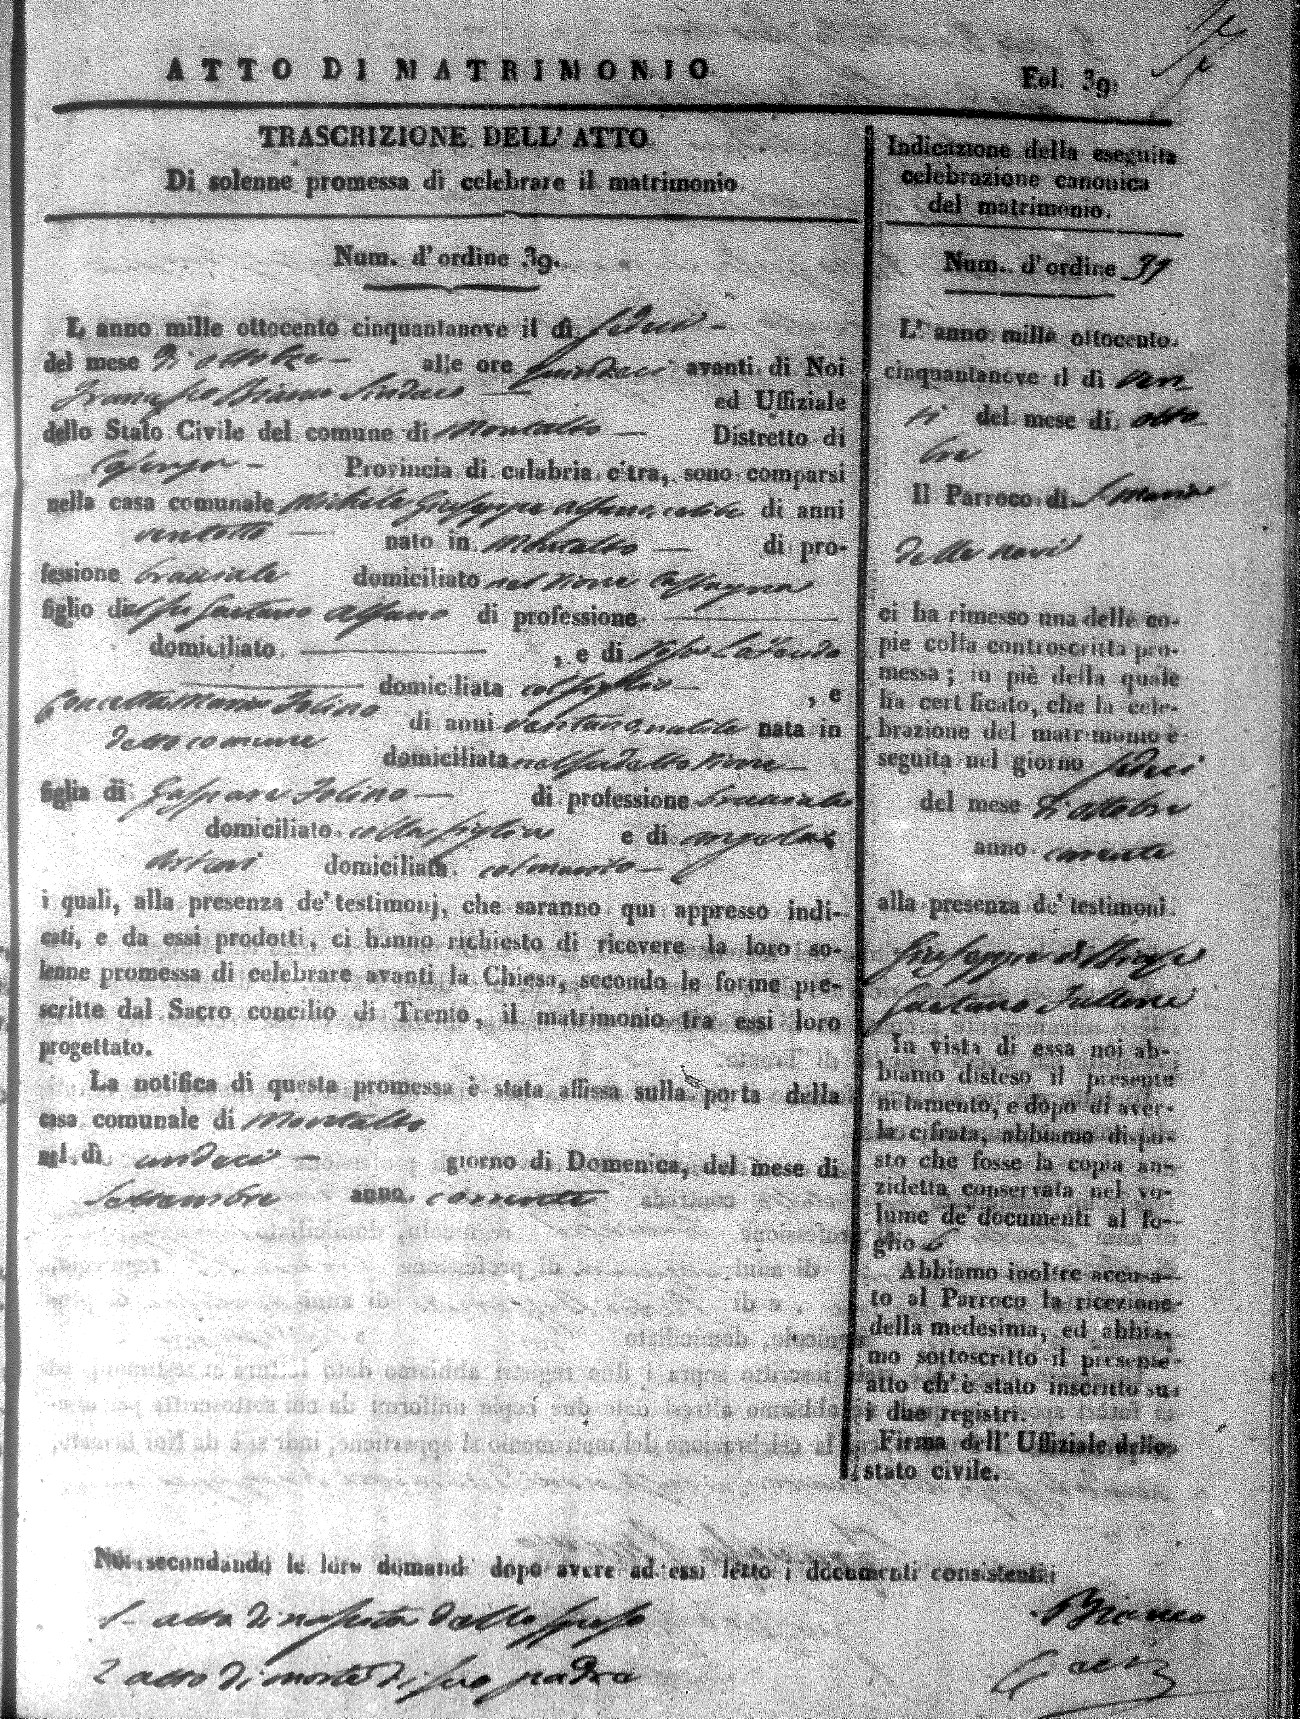 ATTO DI MATRIMONIO
Fol. 39.
TRASCRIZIONE DELL' ATTO
Di solenne promessa di celebrare il matrimonio
Num. d'ordine 39.
L' anno mille ottocento cinquantanove il dì sedeci
del mese di ottobre alle ore quindeci avanti di Noi
Francesco Bianco Sindaco ed Uffiziale
dello Stato Civile del comune di Montalto Distretto di
Cosenza Provincia di calabria citra, sono comparsi
nella casa comunale Michele Giuseppe Alfano, celibe di anni
ventotto nato in Montalto di pro-
fessione bracciale domiciliato nel Rione
figlio di Gaetano Alfano di professione
domiciliato , e di
domiciliata col figlio , e
Concetta Maria Folino di anni nubile nata in
detto comune domiciliata nel Rione
figlia di Gaspare Folino di professione bracciale
domiciliato colla figlia e di Angela
domiciliata col marito
i quali, alla presenza de' testimonj, che saranno qui appresso indi-
cati, e da essi prodotti, ci hanno richiesto di ricevere la loro so-
lenne promessa di celebrare avanti la Chiesa, secondo le forme pre-
scritte dal Sacro concilio di Trento, il matrimonio tra essi loro
progettato.
La notifica di questa promessa è stata affissa sulla porta della
casa comunale di Montalto
nel dì undeci giorno di Domenica, del mese di
Settembre anno corrente
Indicazione della eseguita
celebrazione canonica
del matrimonio.
Num. d'ordine 39
L' anno mille ottocento
cinquantanove il dì ven
ti del mese di otto
bre
Il Parroco di S. Maria
della neve
ci ha rimesso una delle co-
pie colla controscritta pro-
messa; in piè della quale
ha certificato, che la cele-
brazione del matrimonio è
seguita nel giorno sedeci
del mese di ottobre
anno corrente
alla presenza de' testimoni
Giuseppe
Gaetano
In vista di essa noi ab-
biamo disteso il presente
notamento, e dopo di aver-
la cifrata, abbiamo dispo-
sto che fosse la copia an-
zidetta conservata nel vo-
lume de' documenti al fo-
glio
Abbiamo inoltre accusa-
to al Parroco la ricezione
della medesima, ed abbia-
mo sottoscritto il presente
atto ch' è stato inscritto su
i due registri.
Firma dell' Uffiziale dello
stato civile.
Noi secondando le loro domand dopo avere ad essi letto i documenti consistenti
1- atto di nascita dello sposo
2 atto di morte di suo padre
Bianco